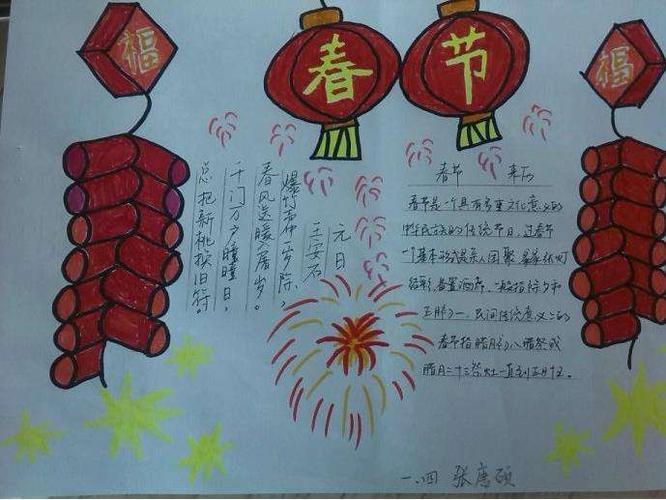 福
春节
福
元日
王安石
爆竹声中一岁除，
春风送暖入屠苏。
千门万户曈曈日，
总把新桃换旧符。
春节 来历
春节是一个具有多重文化意义的
中华民族的传统节日，过春节
一个基本形式是亲人团聚
结彩，备置酒席，一般指除夕和
正月初一，民间传统意义上的
春节指腊月初八腊祭或
腊月二十三祭灶一直到正月十五。
一.四 张唐硕